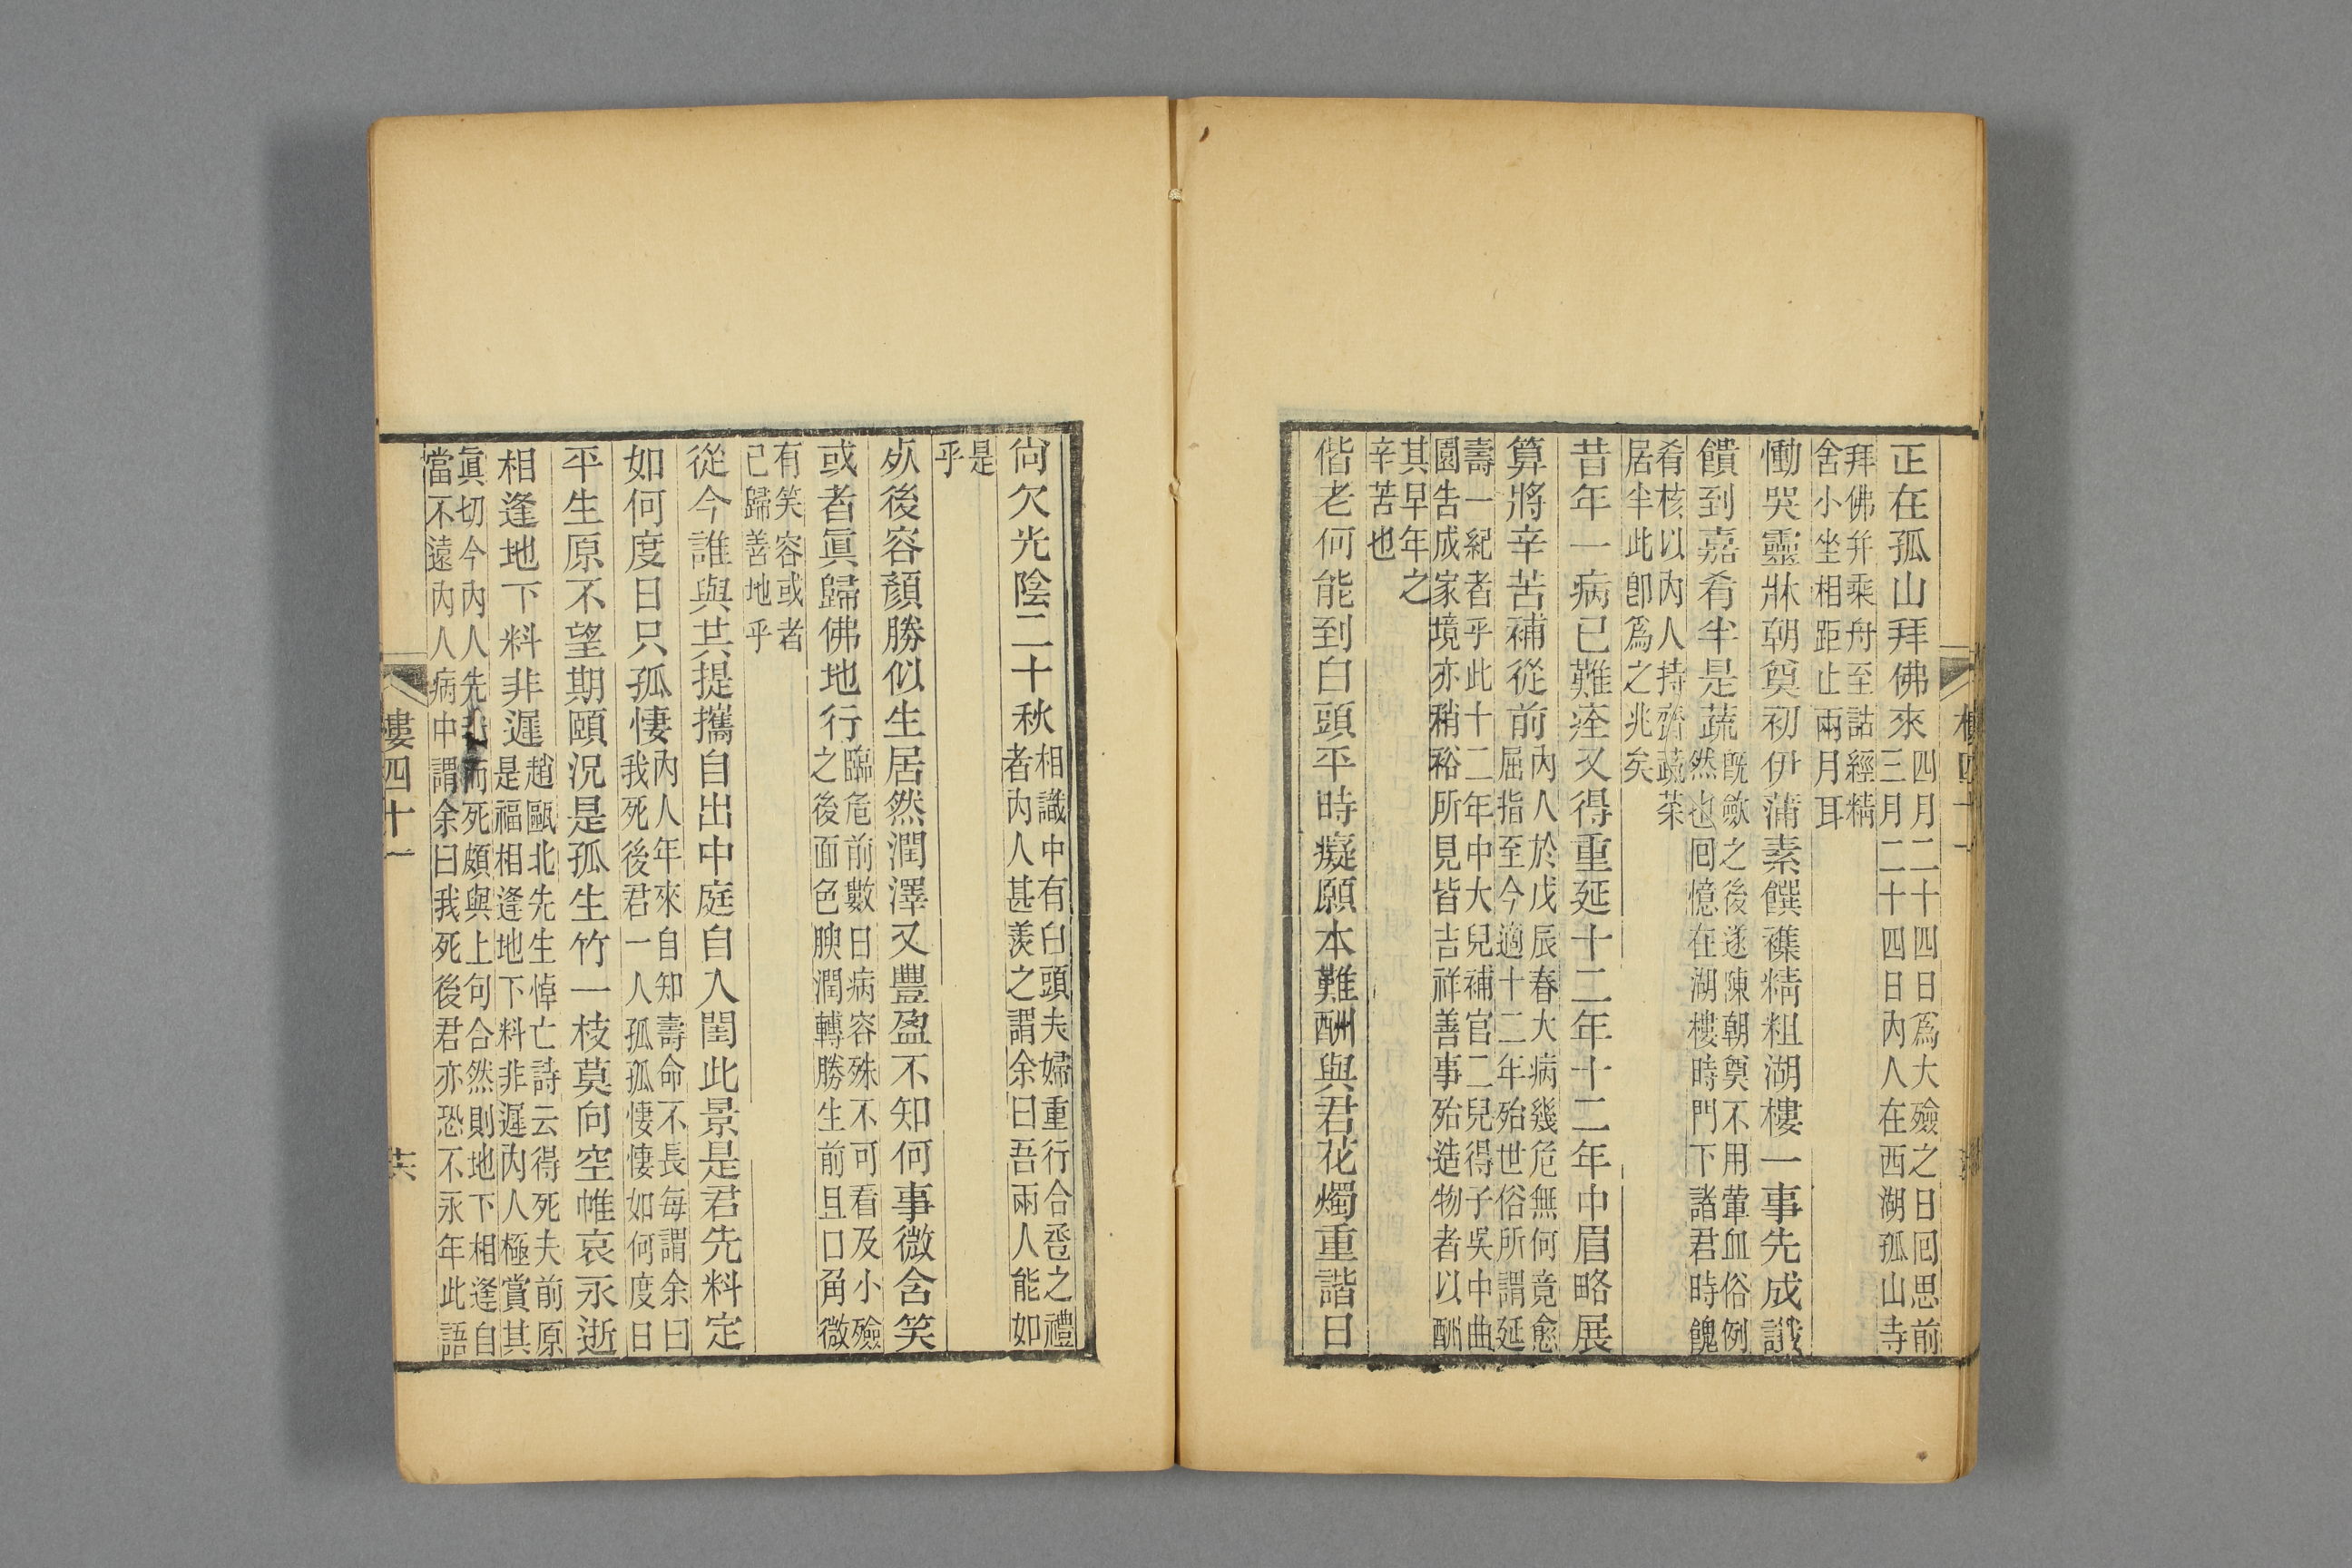 正在孤山拜佛來四月二十四日爲大殮之日回思前三月二十四日內人在西湖孤山寺
拜佛并乘舟至詁經精舍小坐相距止兩月耳
慟哭靈牀朝奠初伊蒲素饌襍精粗湖樓一事先成讖
饋到嘉肴半是蔬旣斂之後遂陳朝奠不用葷血俗例然也回憶在湖樓時門下諸君時餽
肴核以內人持齋蔬菜居半此卽爲之兆矣
昔年一病已難痊又得重延十二年十二年中眉略展
算將辛苦補從前內人於戊辰春大病幾危無何竟愈屈指至今適十二年殆世俗所謂延
壽一紀者乎此十二年中大兒補官二兒得子吳中曲園吿成家境亦稍裕所見皆吉祥善事殆造物者以酬
其早年之辛苦也
偕老何能到白頭平時癡願本難酬與君花燭重諧日
尙欠光陰二十秋相識中有白頭夫婦重行合卺之禮者內人甚羨之謂余曰吾兩人能如
是乎
歿後容顏勝似生居然潤澤又豐盈不知何事微含笑
或者眞歸佛地行臨危前數日病容殊不可看及小殮之後面色腴潤轉勝生前且口角微
有笑容或者已歸善地乎
從今誰與共提攜自出中庭自入閨此景是君先料定
如何度日只孤悽內人年來自知壽命不長每謂余曰我死後君一人孤孤悽悽如何度日
平生原不望期頤況是孤生竹一枝莫向空帷哀永逝
相逢地下料非遲趙甌北先生悼亡詩云得死夫前原是福相逢地下料非遲內人極賞其
眞切今內人先而死頗與上句合然則地下相逢自當不遠內人病中謂余曰我死後君亦恐不永年此語
樓四十一
共